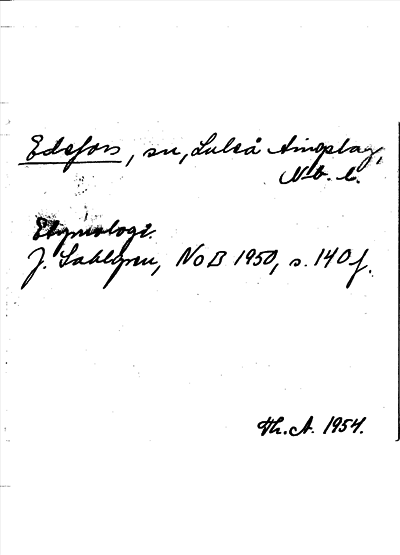 Edefors, sn, Luleå tingslag,
Nb. l.
Etymologi.
J. Sahlgren, NoB 1950, s. 140 f.
Th. A. 1954.